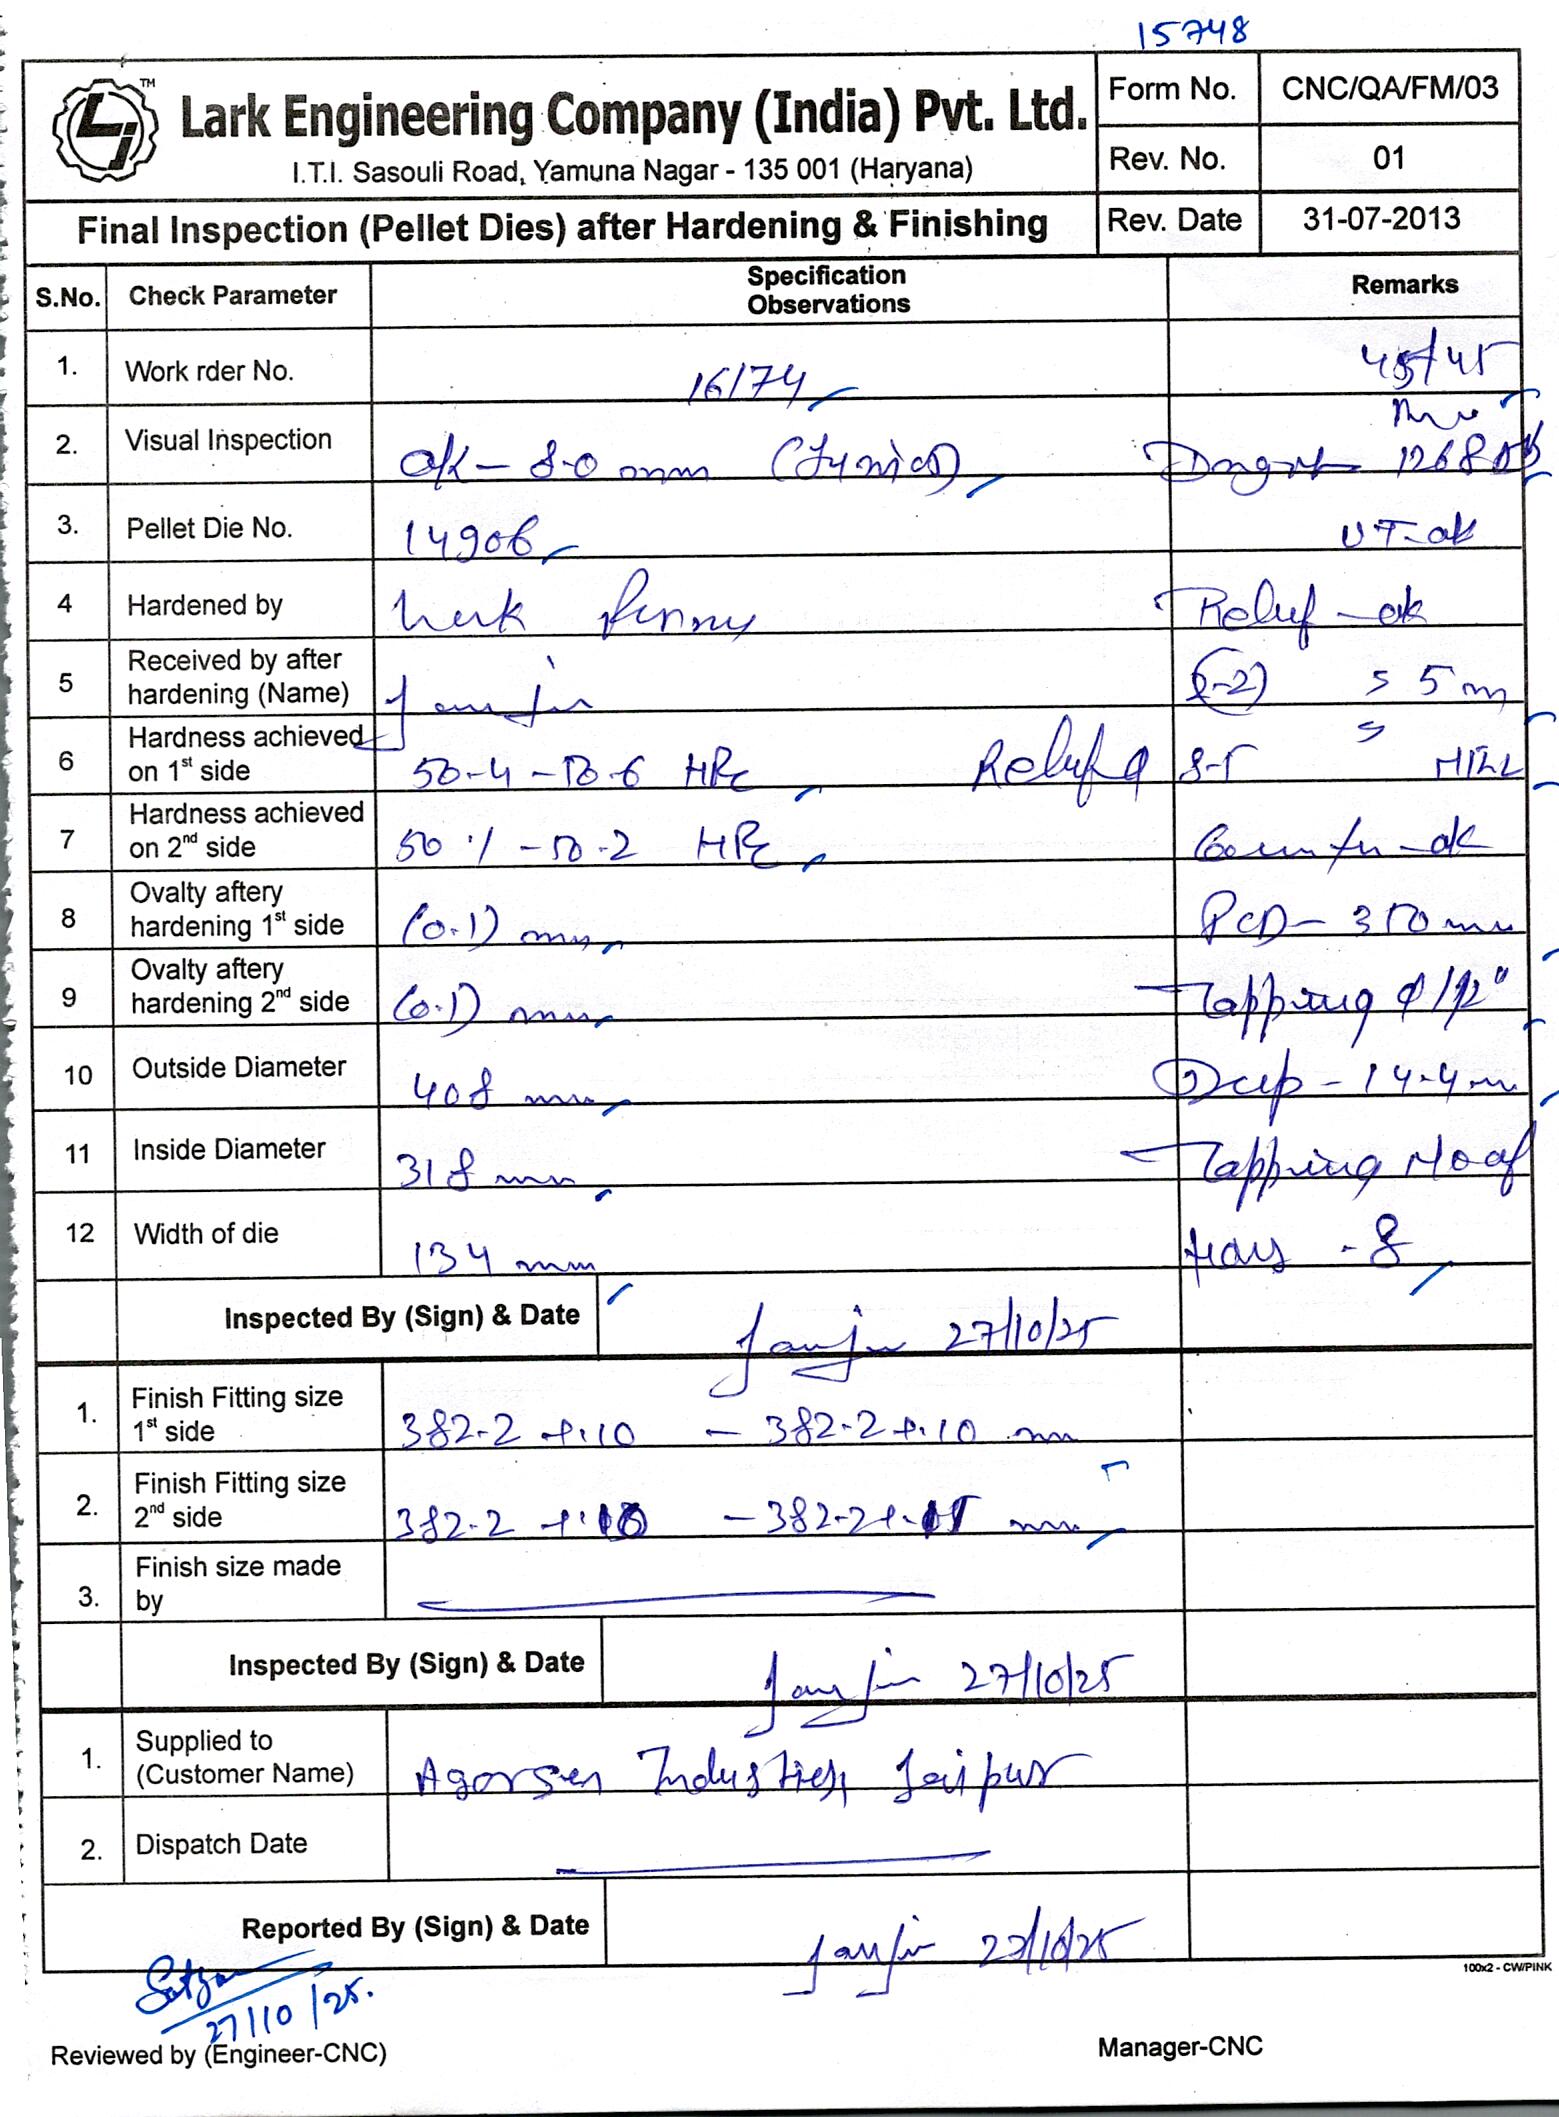 15748
TM
Lark Engineering Company (India) Pvt. Ltd.
I.T.I. Sasouli Road, Yamuna Nagar - 135 001 (Haryana)
Form No. CNC/QA/FM/03
Rev. No. 01
Final Inspection (Pellet Dies) after Hardening & Finishing
Rev. Date 31-07-2013
S.No. Check Parameter Specification Observations Remarks
1. Work rder No. 16174 45/45
2. Visual Inspection ok - 8.0 mm 1268
3. Pellet Die No. 14906 UT-ok
4 Hardened by Relief - ok
5 Received by after hardening (Name) 5 m
6 Hardness achieved on 1st side 50.4 - 50.6 HRc Relief φ 8.5
7 Hardness achieved on 2nd side 50.1 - 50.2 HRc Counter - ok
8 Ovalty aftery hardening 1st side (0.1) mm PCD - 350 mm
9 Ovalty aftery hardening 2nd side (0.1) mm Tapping φ 1/2"
10 Outside Diameter 408 mm Deep - 14.4 m
11 Inside Diameter 318 mm Tapping
12 Width of die 134 mm - 8
Inspected By (Sign) & Date 27/10/25
1. Finish Fitting size 1st side 382.2 +.10 - 382.2 +.10 mm
2. Finish Fitting size 2nd side 382.2 - 382.2 mm
3. Finish size made by
Inspected By (Sign) & Date 27/10/25
1. Supplied to (Customer Name) Agarsen Industries, Jaipur
2. Dispatch Date
Reported By (Sign) & Date 27/10/25
100x2 - CW/PINK
27/10/25.
Reviewed by (Engineer-CNC) Manager-CNC